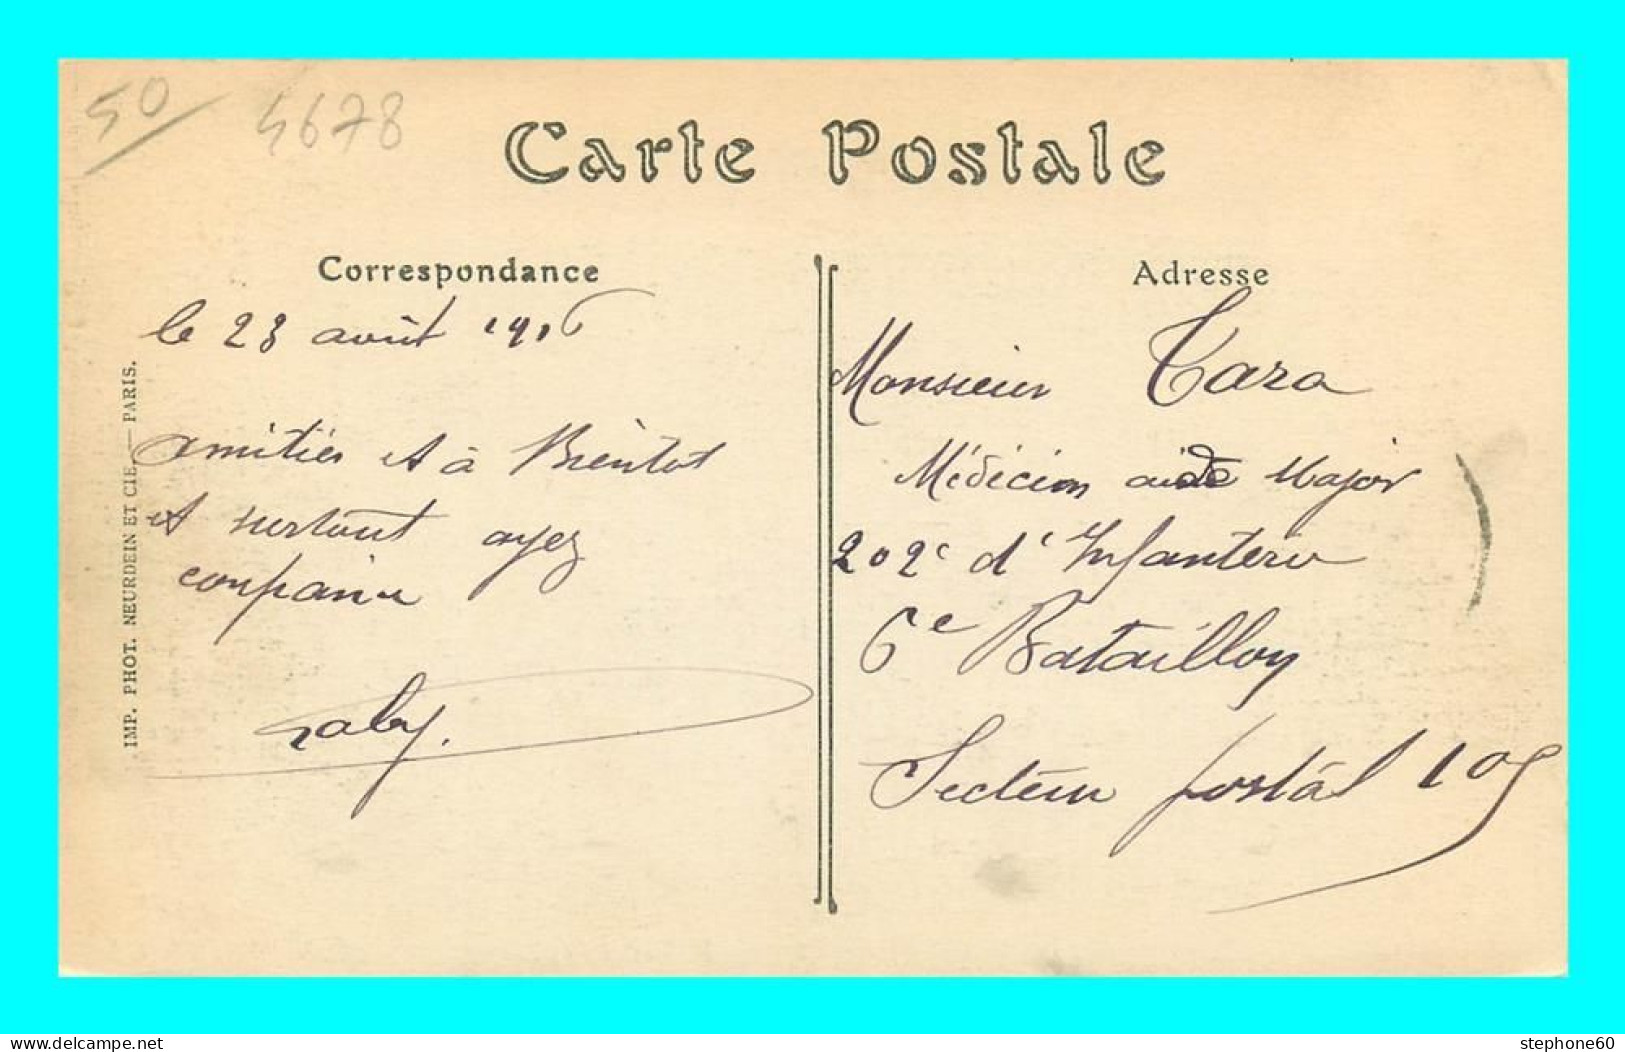 50
4678
Carte Postale
Correspondance
le 23 août 1916
amitiés et à Bientot
et surtout ayez
confiance
Gaby.
IMP. PHOT. NEURDEIN ET CIE. — PARIS.
Adresse
Monsieur Cara
Médécin aide Major
202e d'Infanterie
6e Bataillon
Secteur postal 105
www.delcampe.net
stephone60